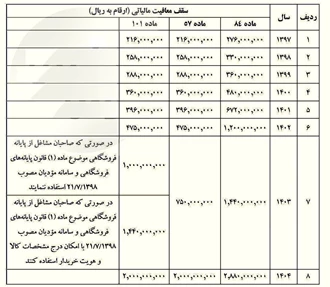 ردیف
سال
سقف معافیت مالیاتی (ارقام به ریال)
ماده ۸۴
ماده ۵۷
ماده ۱۰۱
۱ ۱۳۹۷ ۲۷۶,۰۰۰,۰۰۰ ۲۱۶,۰۰۰,۰۰۰ ۲۱۶,۰۰۰,۰۰۰
۲ ۱۳۹۸ ۳۳۰,۰۰۰,۰۰۰ ۲۵۸,۰۰۰,۰۰۰ ۲۵۸,۰۰۰,۰۰۰
۳ ۱۳۹۹ ۳۶۰,۰۰۰,۰۰۰ ۲۸۸,۰۰۰,۰۰۰ ۲۸۸,۰۰۰,۰۰۰
۴ ۱۴۰۰ ۴۸۰,۰۰۰,۰۰۰ ۳۶۰,۰۰۰,۰۰۰ ۳۶۰,۰۰۰,۰۰۰
۵ ۱۴۰۱ ۶۷۲,۰۰۰,۰۰۰ ۳۹۶,۰۰۰,۰۰۰ ۳۹۶,۰۰۰,۰۰۰
۶ ۱۴۰۲ ۱,۲۰۰,۰۰۰,۰۰۰ ۴۷۵,۰۰۰,۰۰۰ ۴۷۵,۰۰۰,۰۰۰
۷ ۱۴۰۳ ۱,۴۴۰,۰۰۰,۰۰۰ ۷۵۰,۰۰۰,۰۰۰
۱,۰۰۰,۰۰۰,۰۰۰
در صورتی که صاحبان مشاغل از پایانه
فروشگاهی موضوع ماده (۱) قانون پایانه‌های
فروشگاهی و سامانه مؤدیان مصوب
۲۱/۷/۱۳۹۸ استفاده ننمایند
۱,۴۴۰,۰۰۰,۰۰۰
در صورتی که صاحبان مشاغل از پایانه
فروشگاهی موضوع ماده (۱) قانون پایانه‌های
فروشگاهی و سامانه مؤدیان مصوب
۲۱/۷/۱۳۹۸ با امکان درج مشخصات کالا
و هویت خریدار استفاده کنند
۸ ۱۴۰۴ ۲,۸۸۰,۰۰۰,۰۰۰ ۲,۰۰۰,۰۰۰,۰۰۰ ۲,۰۰۰,۰۰۰,۰۰۰